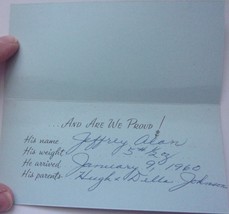 ...AND ARE WE PROUD!
His name Jeffrey Alan
His weight 5#
He arrived January 9, 1960
His parents Hugh & Della Johnson